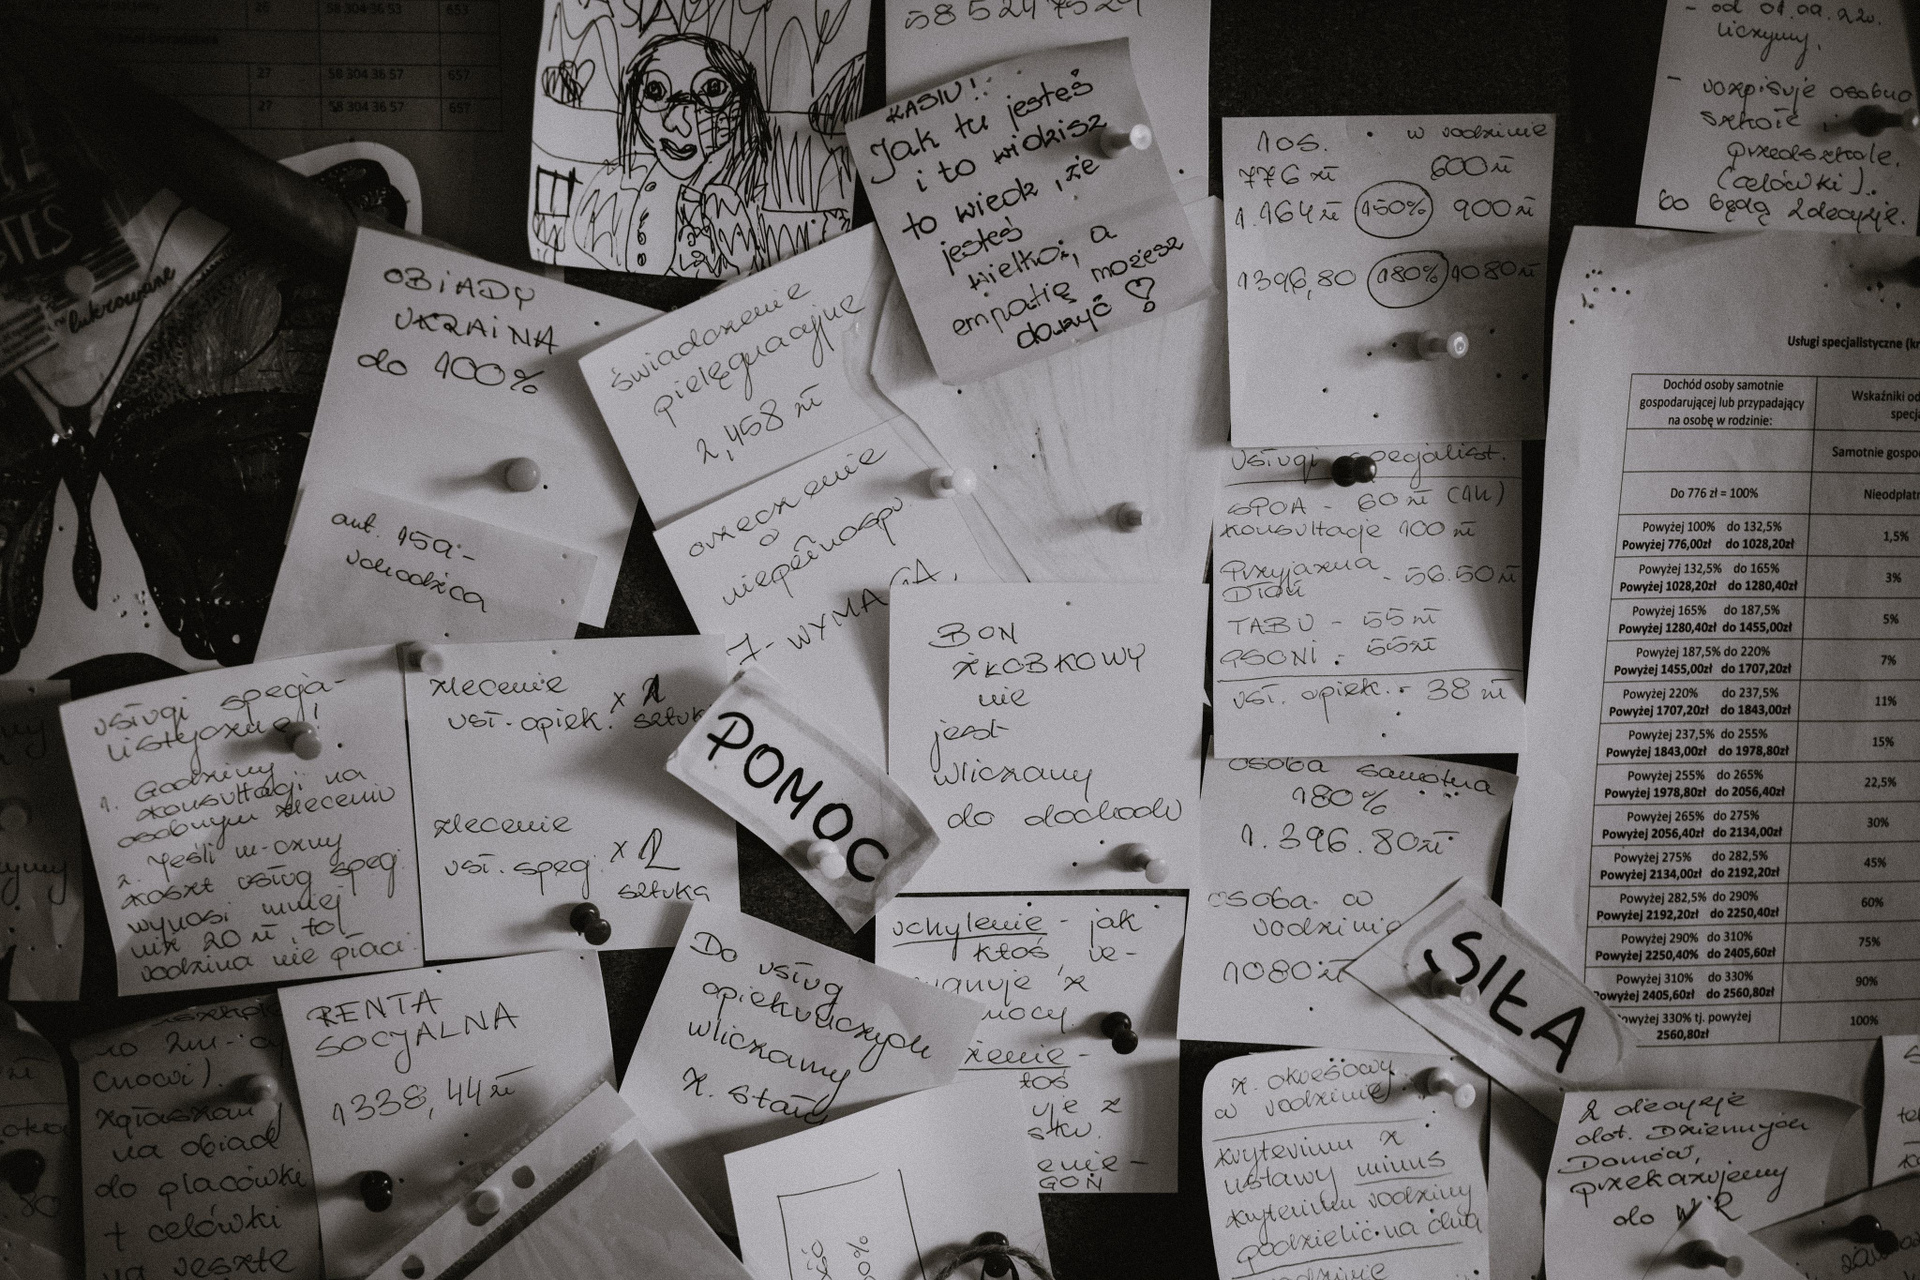 26 58 304 36 53 653
27 58 304 36 57 657
27 58 304 36 57 657
lukrowane
OBIADY
UKRAINA
do 100%
aut. 15a -
KASIU!!
Jak tu jesteś
i to widzisz
to wiedz, że
jesteś
wielka, a
empatię możesz
darzyć
świadczenie
pielęgnacyjne
2,458 zł
orzeczenie
o
niepełnospr.
7 - WYMAGA
1 os. w rodzinie
776 zł 600 zł
1.164 zł 150% 900 zł
1396,80 180% 1080 zł
- od 01.09.22r.
liczymy.
- rozpisuje osobno
szkołę i
przedszkole.
(celówki).
bo będą 2 decyzje.
usługi specjalist.
SPOA - 60 zł (1h)
konsultacje 100 zł
Przyjazna
Dłoń - 56.50 zł
TABU - 55 zł
PSONI - 55 zł
usł. opiek. - 38 zł
Usługi specjalistyczne (kr
Dochód osoby samotnie
gospodarującej lub przypadający
na osobę w rodzinie:
Wskaźniki od
specj
Samotnie gospo
Do 776 zł = 100% Nieodpłat
Powyżej 100% do 132,5%
Powyżej 776,00zł do 1028,20zł 1,5%
Powyżej 132,5% do 165%
Powyżej 1028,20zł do 1280,40zł 3%
Powyżej 165% do 187,5%
Powyżej 1280,40zł do 1455,00zł 5%
Powyżej 187,5% do 220%
Powyżej 1455,00zł do 1707,20zł 7%
Powyżej 220% do 237,5%
Powyżej 1707,20zł do 1843,00zł 11%
Powyżej 237,5% do 255%
Powyżej 1843,00zł do 1978,80zł 15%
Powyżej 255% do 265%
Powyżej 1978,80zł do 2056,40zł 22,5%
Powyżej 265% do 275%
Powyżej 2056,40zł do 2134,00zł 30%
Powyżej 275% do 282,5%
Powyżej 2134,00zł do 2192,20zł 45%
Powyżej 282,5% do 290%
Powyżej 2192,20zł do 2250,40zł 60%
Powyżej 290% do 310%
Powyżej 2250,40% do 2405,60zł 75%
Powyżej 310% do 330%
Powyżej 2405,60zł do 2560,80zł 90%
Powyżej 330% tj. powyżej
2560,80zł 100%
usługi specja-
listyczne!
1. Godziny
konsultacji na
osobnym zleceniu
2. Jeśli m-czny
koszt usług specj.
wynosi mniej
niż 20 zł, to
rodzina nie płaci.
zlecenie
usł. opiek. x 1
sztuka
zlecenie
usł. specj. x 2
sztuka
POMOC
BON
ŻŁOBKOWY
nie
jest
wliczany
do dochodu
osoba samotna
180%
1.396.80 zł
osoba w
rodzinie
1080 zł
SIŁA
uchylenie - jak
ktoś re-
zygnuje z
Do usług
opiekuńczych
wliczamy
z. stały
RENTA
SOCJALNA
1338,44 zł
zgłaszam
na obiad
do placówki
+ celówki
na resztę
z. okresowy
w rodzinie
kryterium z
ustawy minus
kryterium rodziny
podzielić na dwa
2 decyzje
dot. Dziennych
Domów,
przekazujemy
do